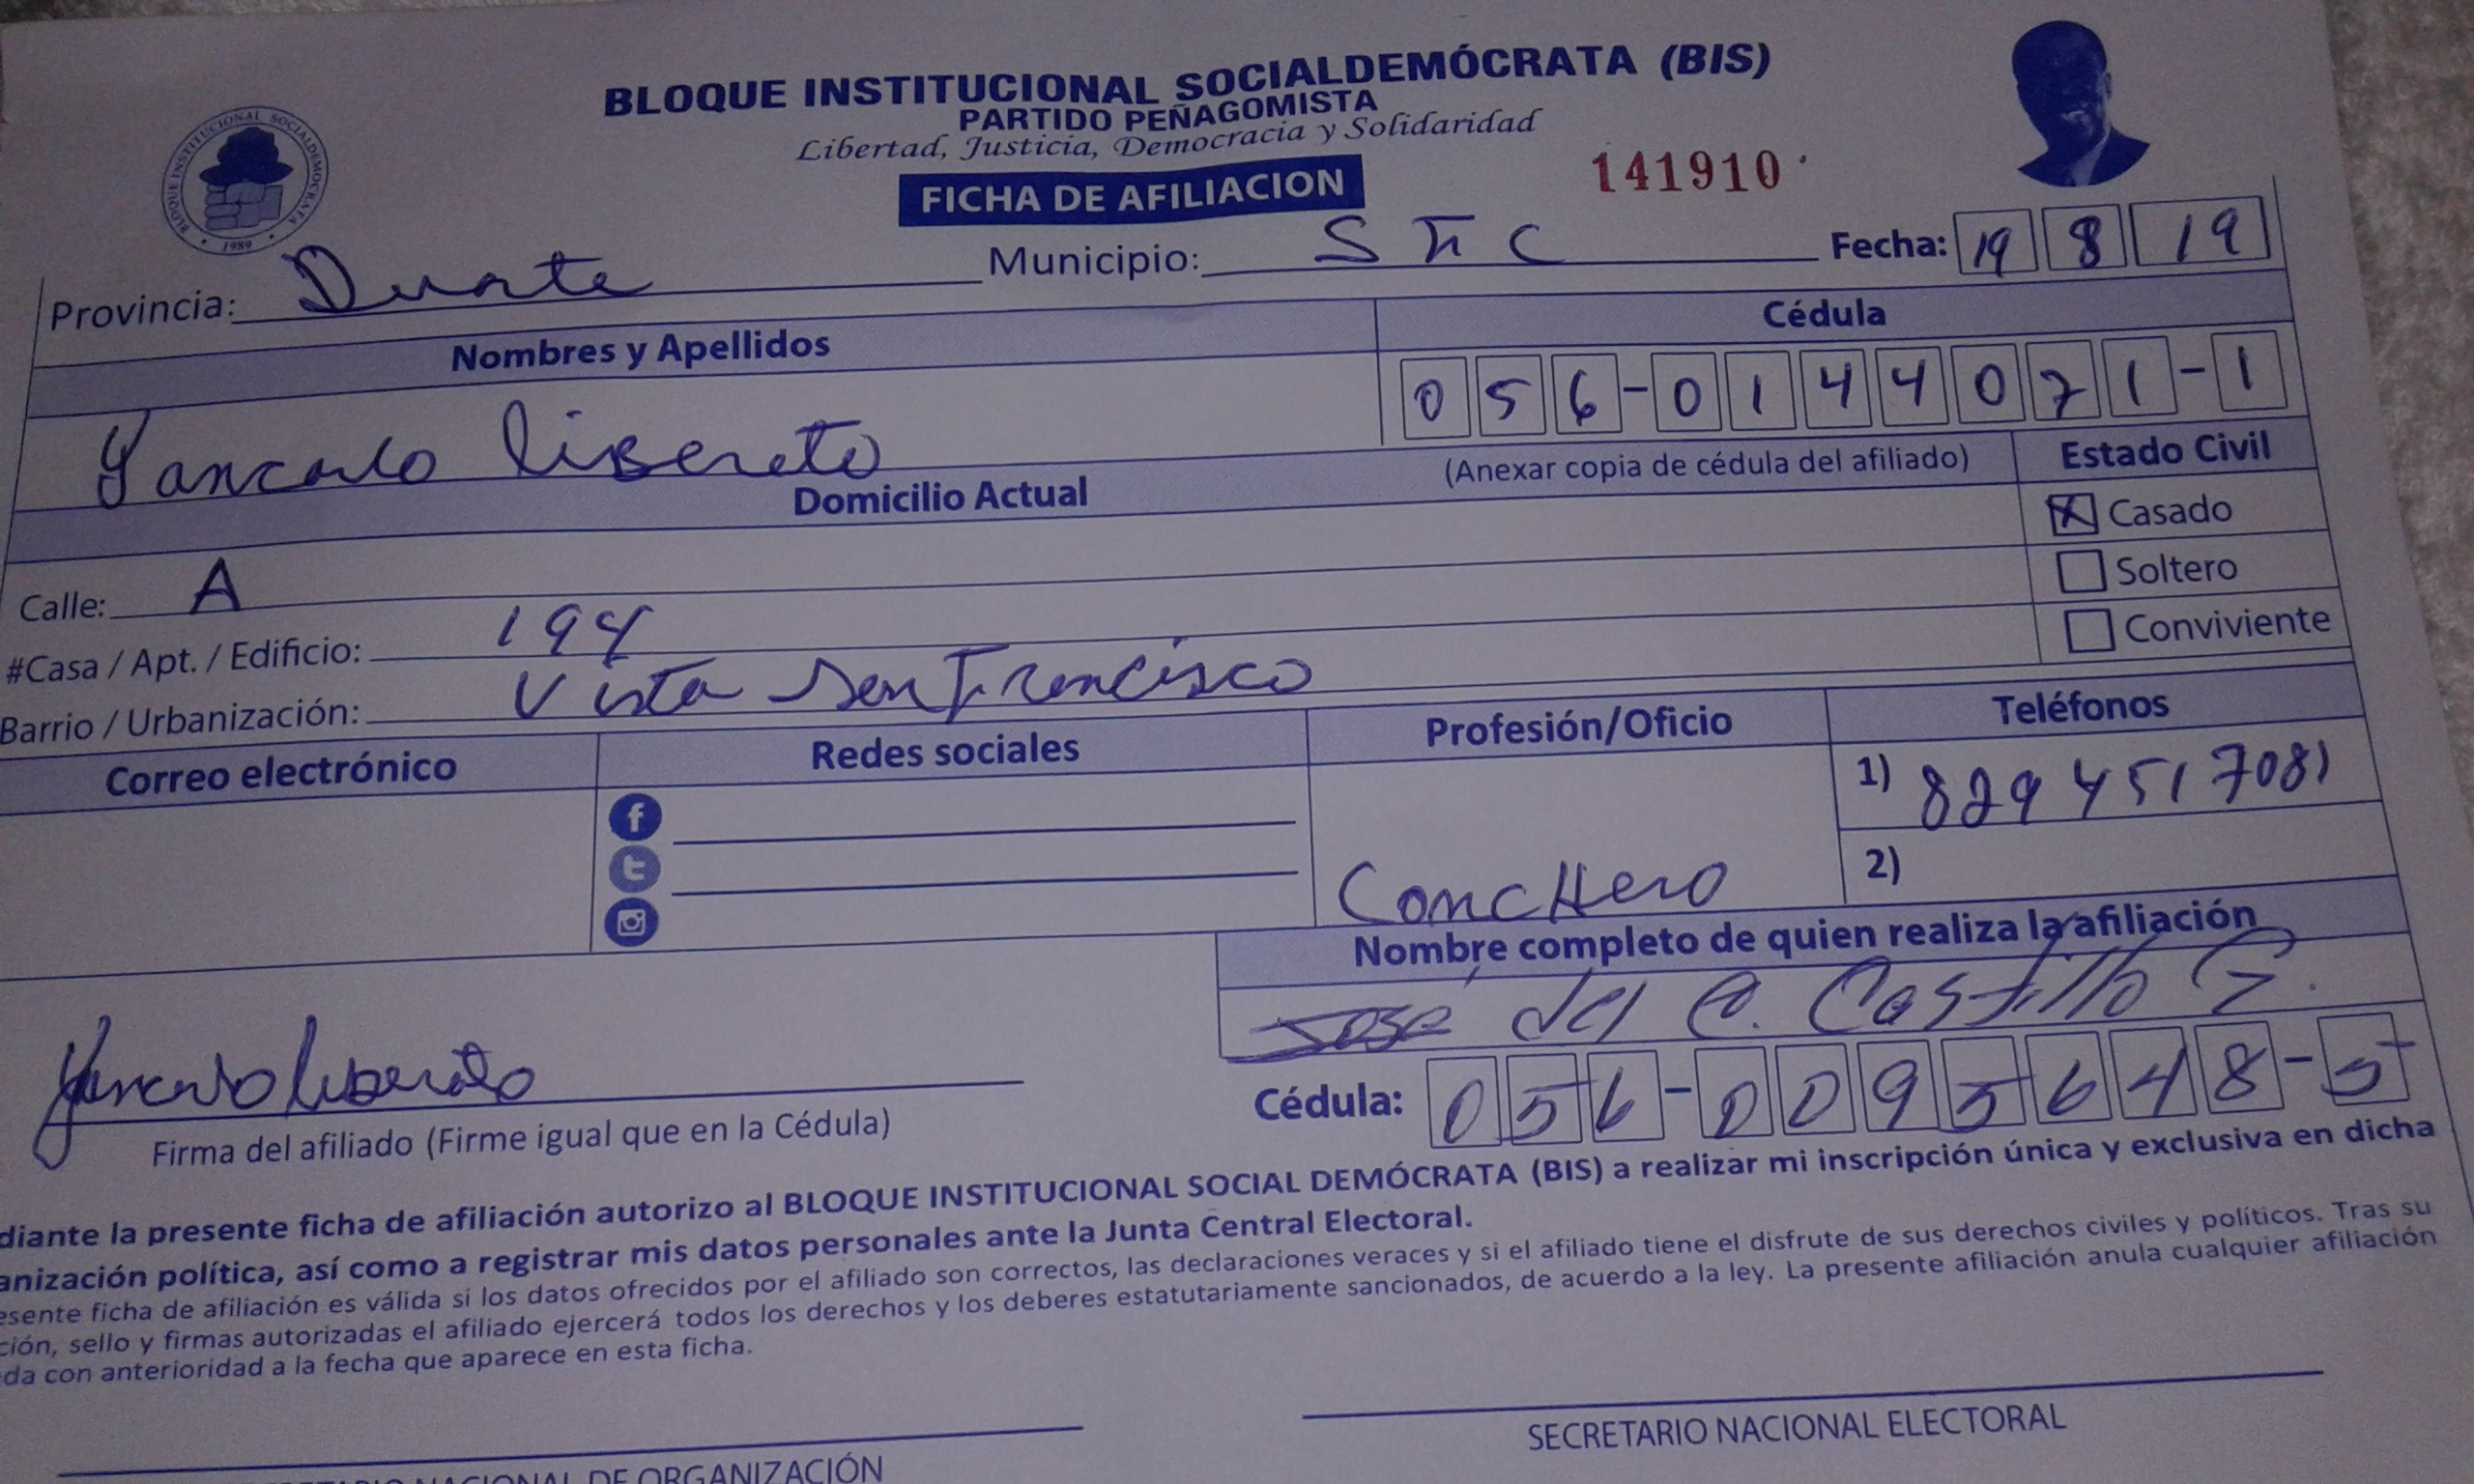 BLOQUE INSTITUCIONAL SOCIALDEMÓCRATA (BIS)
PARTIDO PEÑAGOMISTA
Libertad, Justicia, Democracia y Solidaridad
BLOQUE INSTITUCIONAL SOCIALDEMOCRATA • 1989 •
FICHA DE AFILIACION
141910
Provincia: Duarte Municipio: Fecha: 19 8 19
Nombres y Apellidos Cédula
Yancarlo liBerato 056-0144071-1
Domicilio Actual (Anexar copia de cédula del afiliado) Estado Civil
Calle: A X Casado
Soltero
#Casa / Apt. / Edificio: 194 Conviviente
Barrio / Urbanización: Vista San Francisco
Correo electrónico Redes sociales Profesión/Oficio Teléfonos
1) 829 451 7081
f
t
ConcHero 2)
Nombre completo de quien realiza la afiliación
José del C. Castillo G.
Yancarlo liberato
Firma del afiliado (Firme igual que en la Cédula) Cédula: 056-0095648-5
diante la presente ficha de afiliación autorizo al BLOQUE INSTITUCIONAL SOCIAL DEMÓCRATA (BIS) a realizar mi inscripción única y exclusiva en dicha
anización política, así como a registrar mis datos personales ante la Junta Central Electoral.
esente ficha de afiliación es válida si los datos ofrecidos por el afiliado son correctos, las declaraciones veraces y si el afiliado tiene el disfrute de sus derechos civiles y políticos. Tras su
ción, sello y firmas autorizadas el afiliado ejercerá todos los derechos y los deberes estatutariamente sancionados, de acuerdo a la ley. La presente afiliación anula cualquier afiliación
da con anterioridad a la fecha que aparece en esta ficha.
SECRETARIO NACIONAL ELECTORAL
NACIONAL DE ORGANIZACIÓN